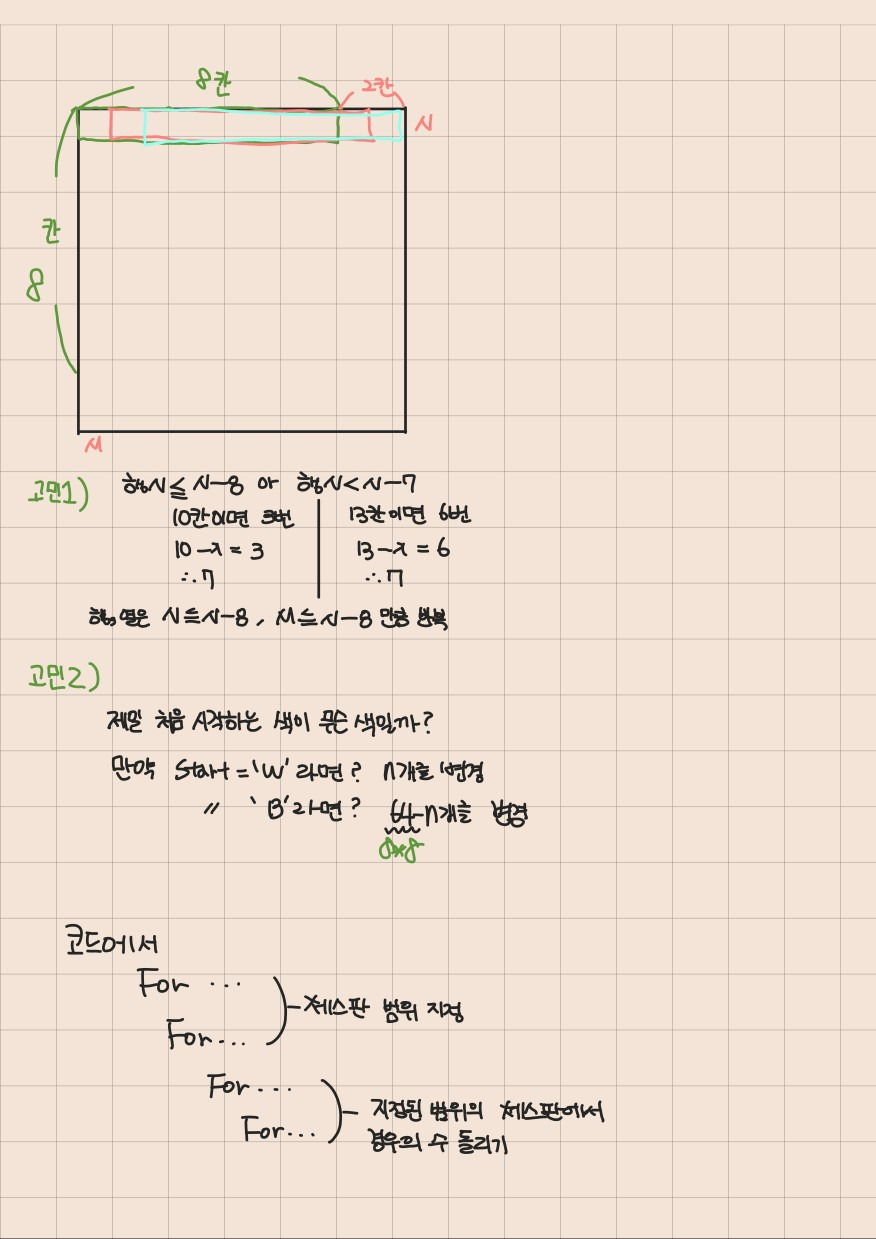 8칸
2칸
N
칸
8
M
고민1)
행N ≦ N-8 or 행N < N-7
10칸이면 3번
13칸이면 6번
10-x = 3
13-x = 6
∴7
∴7
행, 열은 N≦N-8, M≦N-8 만큼 반복
고민2)
제일 처음 시작하는 색이 무슨 색일까?
만약 Start = 'W' 라면? n개를 변경
〃 'B'라면? 64-n개를 변경
8×8
코드에서
For ...
For...
체스판 범위 지정
For ...
For...
지정된 범위의 체스판에서
경우의 수 돌리기